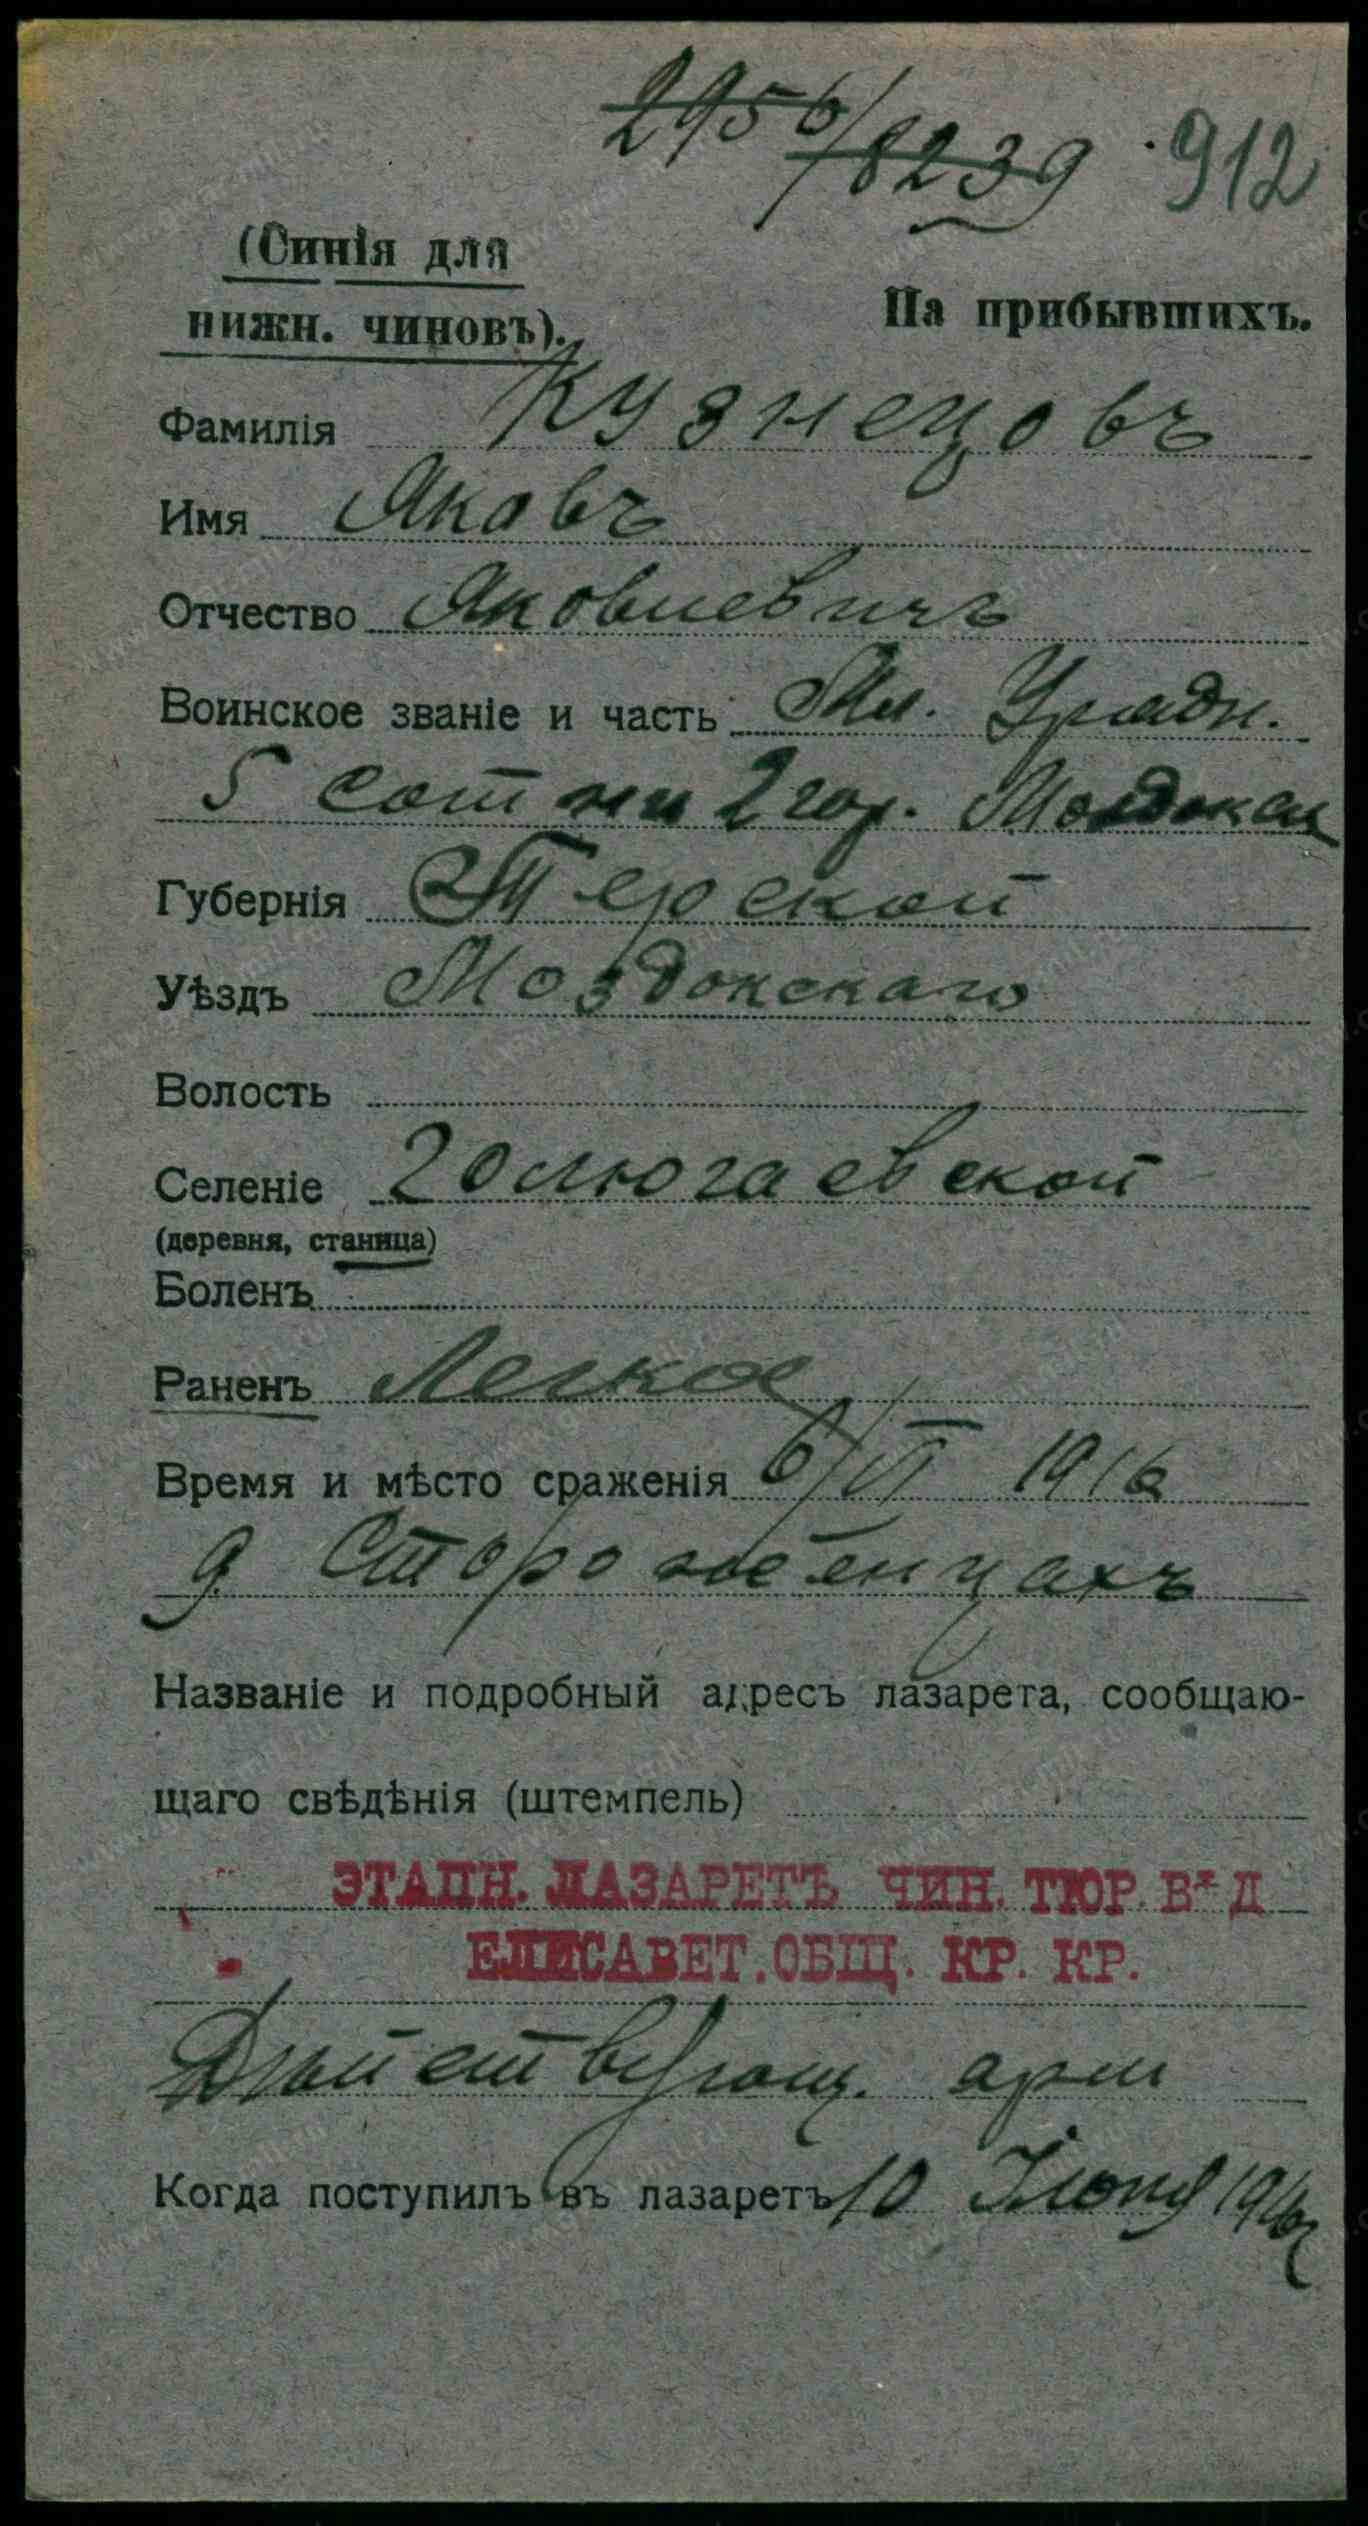 2956/8239 912
(Синія для
нижн. чиновъ).
На прибывшихъ.
Фамилія Кузнецовъ
Имя Яковъ
Отчество Яковлевичъ
Воинское званіе и часть Мл. Урядн.
5 сотни 2 гор. Моздокск
Губернія Терской
Уѣздъ Моздокскаго
Волость
Селеніе Голюгаевской
(деревня, станица)
Боленъ
Раненъ Легкое
Время и мѣсто сраженія 6/VI 1916
д Сторожѐнцахъ
Названіе и подробный адресъ лазарета, сообщаю-
щаго свѣдѣнія (штемпель)
ЭТАПН. ЛАЗАРЕТЪ ЧИН. ТЮР. Вѣ Д
ЕЛИСАВЕТ. ОБЩ. КР. КР.
Дѣйствующ. арм
Когда поступилъ въ лазаретъ 10 Іюня 1916